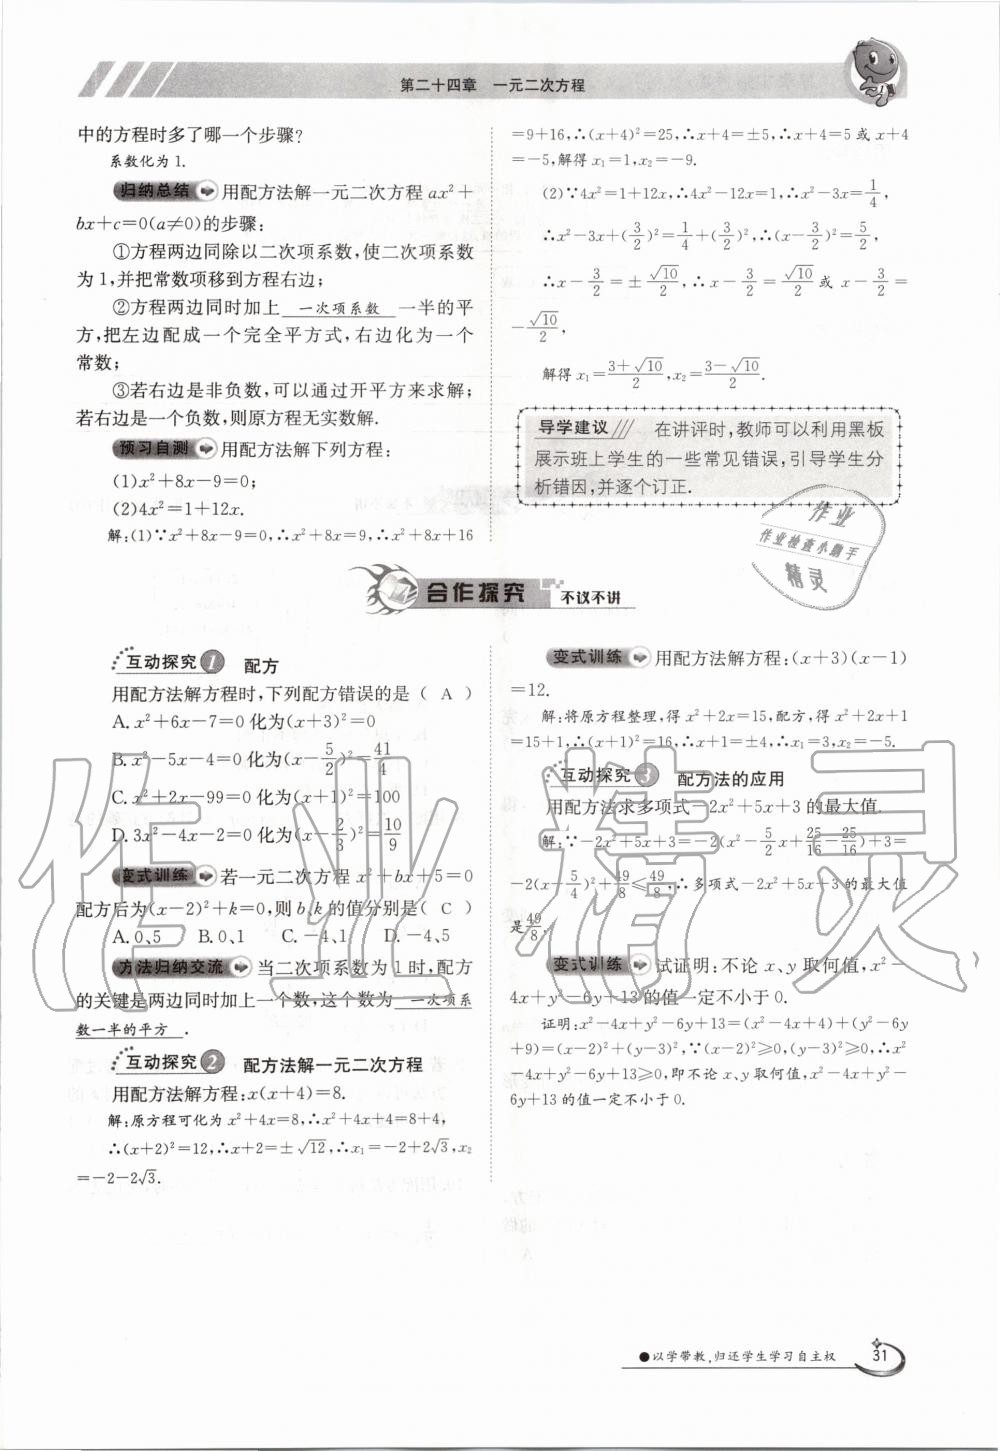 第二十四章 一元二次方程
中的方程时多了哪一个步骤?
系数化为 1.
归纳总结 用配方法解一元二次方程 ax²+
bx+c=0(a≠0)的步骤:
①方程两边同除以二次项系数,使二次项系数
为 1,并把常数项移到方程右边;
②方程两边同时加上 一次项系数 一半的平
方,把左边配成一个完全平方式,右边化为一个
常数;
③若右边是非负数,可以通过开平方来求解;
若右边是一个负数,则原方程无实数解.
预习自测 用配方法解下列方程:
(1)x²+8x-9=0;
(2)4x²=1+12x.
解:(1)∵x²+8x-9=0,∴x²+8x=9,∴x²+8x+16
=9+16,∴(x+4)²=25,∴x+4=±5,∴x+4=5 或 x+4
=-5,解得 x₁=1,x₂=-9.
(2)∵4x²=1+12x,∴4x²-12x=1,∴x²-3x=1/4,
∴x²-3x+(3/2)²=1/4+(3/2)²,∴(x-3/2)²=5/2,
∴x-3/2=±√10/2,∴x-3/2=√10/2 或 x-3/2=
-√10/2,
解得 x₁=(3+√10)/2,x₂=(3-√10)/2.
导学建议 在讲评时,教师可以利用黑板
展示班上学生的一些常见错误,引导学生分
析错因,并逐个订正.
作业
作业检查小助手
精灵
合作探究 不议不讲
互动探究 1 配方
用配方法解方程时,下列配方错误的是( A )
A. x²+6x-7=0 化为(x+3)²=0
B. x²-5x-4=0 化为(x-5/2)²=41/4
C. x²+2x-99=0 化为(x+1)²=100
D. 3x²-4x-2=0 化为(x-2/3)²=10/9
变式训练 若一元二次方程 x²+bx+5=0
配方后为(x-2)²+k=0,则 b、k 的值分别是( C )
A. 0、5 B. 0、1 C. -4、1 D. -4、5
方法归纳交流 当二次项系数为 1 时,配方
的关键是两边同时加上一个数,这个数为 一次项系
数一半的平方 .
互动探究 2 配方法解一元二次方程
用配方法解方程:x(x+4)=8.
解:原方程可化为 x²+4x=8,∴x²+4x+4=8+4,
∴(x+2)²=12,∴x+2=±√12,∴x₁=-2+2√3,x₂
=-2-2√3.
变式训练 用配方法解方程:(x+3)(x-1)
=12.
解:将原方程整理,得 x²+2x=15,配方,得 x²+2x+1
=15+1,∴(x+1)²=16,∴x+1=±4,∴x₁=3,x₂=-5.
互动探究 3 配方法的应用
用配方法求多项式-2x²+5x+3 的最大值.
解:∵-2x²+5x+3=-2(x²-5/2x+25/16-25/16)+3=
-2(x-5/4)²+49/8≤49/8,∴多项式-2x²+5x+3 的最大值
是49/8.
变式训练 试证明:不论 x、y 取何值,x²-
4x+y²-6y+13 的值一定不小于 0.
证明:x²-4x+y²-6y+13=(x²-4x+4)+(y²-6y
+9)=(x-2)²+(y-3)²,∵(x-2)²≥0,(y-3)²≥0,∴x²
-4x+y²-6y+13≥0,即不论 x、y 取何值,x²-4x+y²-
6y+13 的值一定不小于 0.
作业精灵
●以学带教,归还学生学习自主权 31